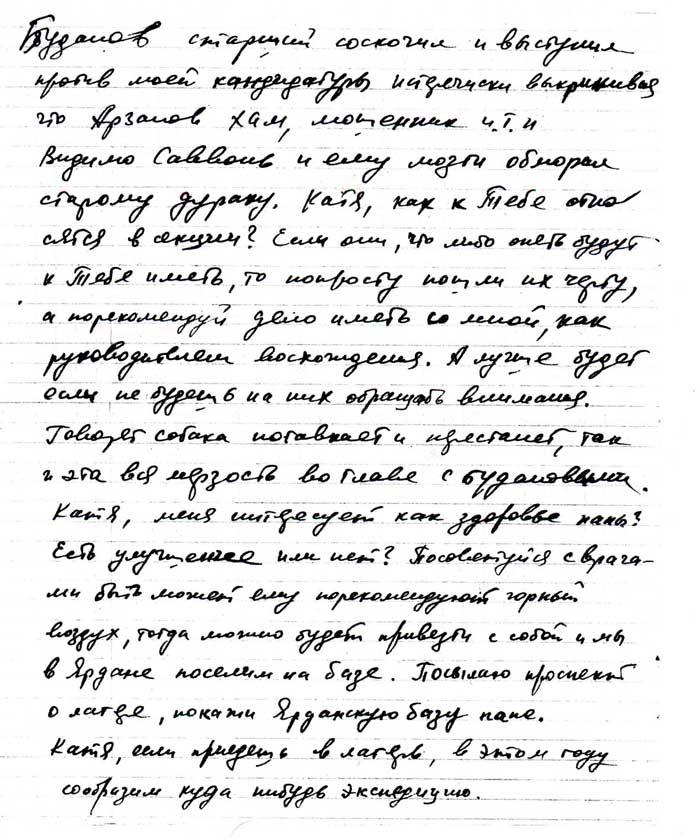 Буданов старший соскочил и выступил
против моей кандидатуры истерически выкрикивая
что Арзанов хам, мошенник и.т.и
Видимо Саввонь и ему мозги обморал
старому дураку. Катя, как к Тебе отно
сятся в секции? Если они, что либо опеть будут
к Тебе иметь, то попросту пошли их черту,
а порекомендуй дело иметь со мной, как
руководителем восхождения. А лучше будет
если не будешь на них обращать внимания.
Говорят собака потавкает и перестанет, так
и эта вся мерзость во главе с Будановыми.
Катя, меня интересует как здоровье папы?
Есть улучшение или нет? Посоветуйся с врача-
ми быть может ему порекомендуют горный
воздух, тогда можно будет привезти с собой и мы
в Ярдане поселим на базе. Посылаю проспект
о лагере, покажи Ярданскую базу папе.
Катя, если приедешь в лагерь, в этом году
сообразим куда нибудь экспедицию.